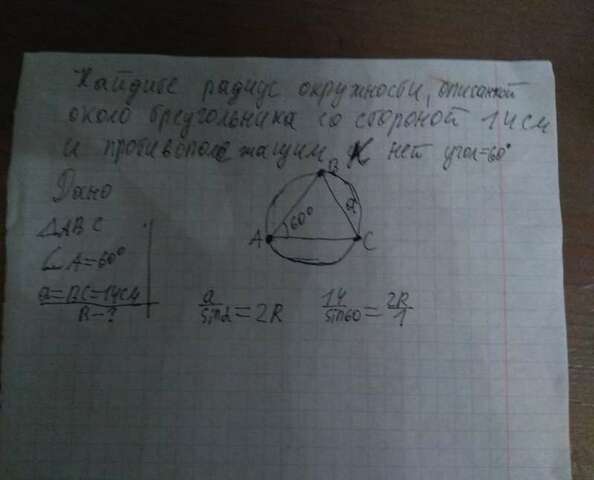 Найдите радиус окружности, описанной
около треугольника со стороной 14 см
и противополежащим К нет угол=60°
Дано
△ABC
∠A=60°
a=BC=14см
R-?
B
60°
a
A
C
a/sinα=2R
14/sin60=2R/1